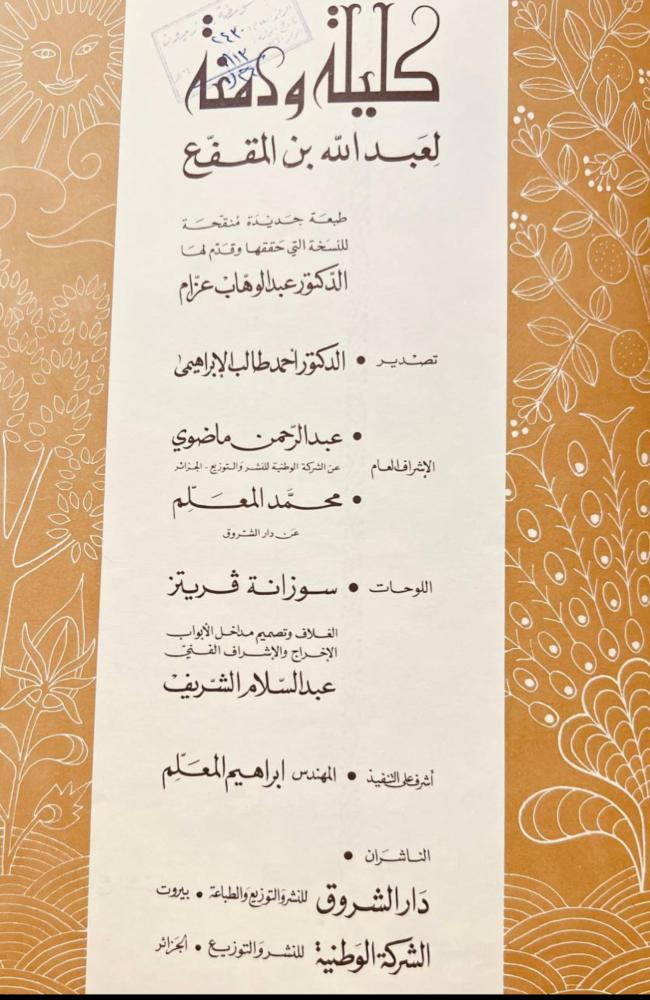 كليلة ودمنة
لعبد الله بن المقفّع
طبعة جديدة منقحة
للنسخة التي حققها وقدّم لها
الدّكتور عبد الوهّاب عزّام
تصدير • الدكتور أحمد طالب الإبراهيمى
الإشراف العام
• عبد الرّحمن ماضوي
عن الشركة الوطنية للنشر والتوزيع - الجزائر
• محمّد المعلّم
عن دار الشروق
اللوحات • سوزانة ڤريتز
الغلاف وتصميم مداخل الأبواب
الإخراج والإشراف الفني
عبد السّلام الشّريف
أشرف على التنفيذ • المهندس ابراهيم المعلّم
الناشران •
دَار الشروق للنشر والتوزيع والطباعة • بيروت
الشركة الوَطنية للنشر والتوزيع • الجزائر
٢٤٣